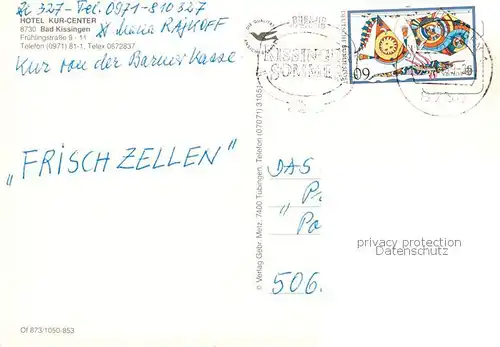 Zi 327 - Tel. 0971-810327
HOTEL KUR-CENTER
8730 Bad Kissingen
Frühlingstraße 9 - 11
Telefon (0971) 81-1, Telex 0672837
Maria RAJKOFF
Kur von der Barmer Kasse
„FRISCHZELLEN"
Of 873/1050-853
© Verlag Gebr. Metz, 7400 Tübingen, Telefon (07071) 31051
KISSINGER
SOMMER
60
DAS
„P
Po
506.
privacy protection
Datenschutz